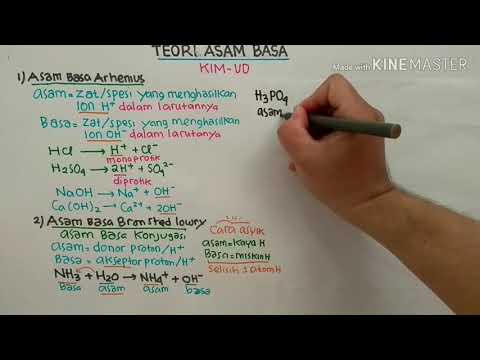 TEORI ASAM BASA
KIM-UD
Made with KINEMASTER
1) Asam Basa Arhenius
asam = zat/spesi yang menghasilkan
ION H⁺ dalam larutannya
Basa = zat/spesi yang menghasilkan
ION OH⁻ dalam larutannya
HCl → H⁺ + Cl⁻
monoprotik
H₂SO₄ → 2H⁺ + SO₄²⁻
diprotik
NaOH → Na⁺ + OH⁻
Ca(OH)₂ → Ca²⁺ + 2OH⁻
2) Asam Basa Bronsted lowry
asam Basa Konjugasi
asam = donor proton/H⁺
Basa = akseptor proton/H⁺
NH₃ + H₂O → NH₄⁺ + OH⁻
Basa asam asam basa
Cara asyik
asam = kaya H
Basa = miskin H
selisih 1 atom H
H₃PO₄
asam